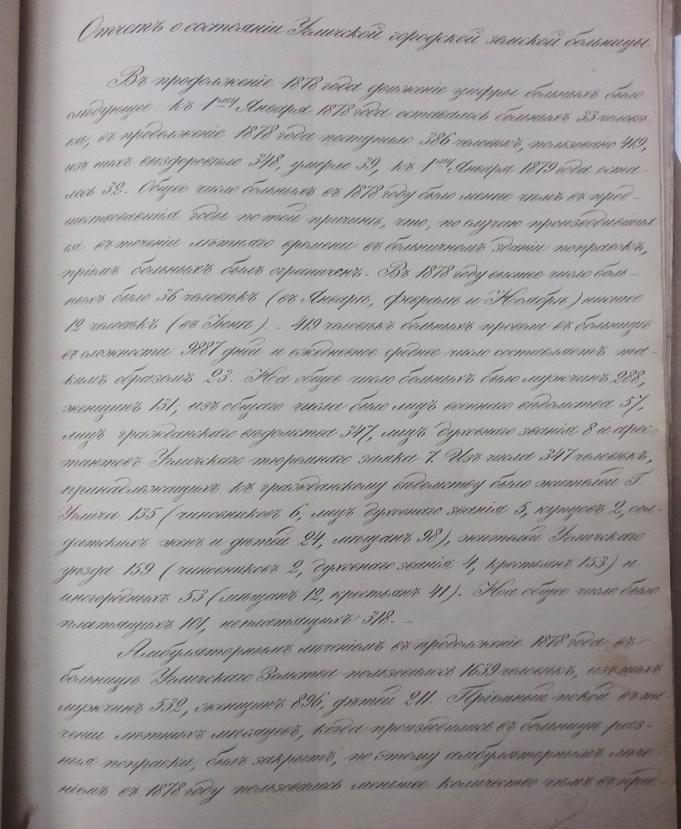 Отчетъ о состояніи Угличской городской земской больницы
Въ продолженіе 1878 года движеніе цифры больныхъ было
следующее: къ 1му Января 1878 года оставалось больныхъ 33 человѣ-
ка, въ продолженіе 1878 года поступило 386 человѣкъ, пользовано 419,
изъ нихъ выздоровѣло 348, умерло 39, къ 1му Января 1879 года оста-
лось 32. Общее число больныхъ въ 1878 году было менѣе чѣмъ въ пред-
шествовавшія годы по той причинѣ, что, по случаю производивших-
ся въ теченіи лѣтняго времени въ больничномъ зданіи поправокъ,
пріемъ больныхъ былъ ограниченъ. Въ 1878 году высшее число боль-
ныхъ было 36 человѣкъ (въ Январѣ, февралѣ и Ноябрѣ) нисшее
12 человѣкъ (въ Іюнѣ). - 419 человѣкъ больныхъ провели въ больницѣ
въ сложности 9887 дней и ежедневное среднее число составляетъ та-
кимъ образомъ 23. На общее число больныхъ было мужчинъ 288,
женщинъ 131, изъ общаго числа было лицъ военнаго вѣдомства 57,
лицъ гражданскаго вѣдомства 347, лицъ духовнаго званія 8 и арес-
тантовъ Угличскаго тюремнаго замка 7. Изъ числа 347 человѣкъ,
принадлежащихъ къ гражданскому вѣдомству было жителей Г.
Углича 135 (чиновниковъ 6, лицъ духовнаго званія 5, купцовъ 2, сол-
датскихъ женъ и дѣтей 24, мѣщанъ 98), жителей Угличскаго
уѣзда 159 (чиновниковъ 2, духовнаго званія 4, крестьянъ 153) и
иногородныхъ 53 (мѣщанъ 12, крестьянъ 41). На общее число было
платящихъ 101, неплатящихъ 318. -
Амбулаторнымъ лѣченіемъ въ продолженіе 1878 года въ
больницѣ Угличскаго Земства пользовалось 1639 человѣкъ, изъ нихъ
мужчинъ 532, женщинъ 896, дѣтей 211. Пріемный покой въ те-
ченіи лѣтнихъ мѣсяцевъ, когда производились въ больницѣ раз-
ныя поправки, былъ закрытъ, по этому амбулаторнымъ лѣче-
ніемъ въ 1878 году пользовалось меньшее количество чѣмъ въ пре-